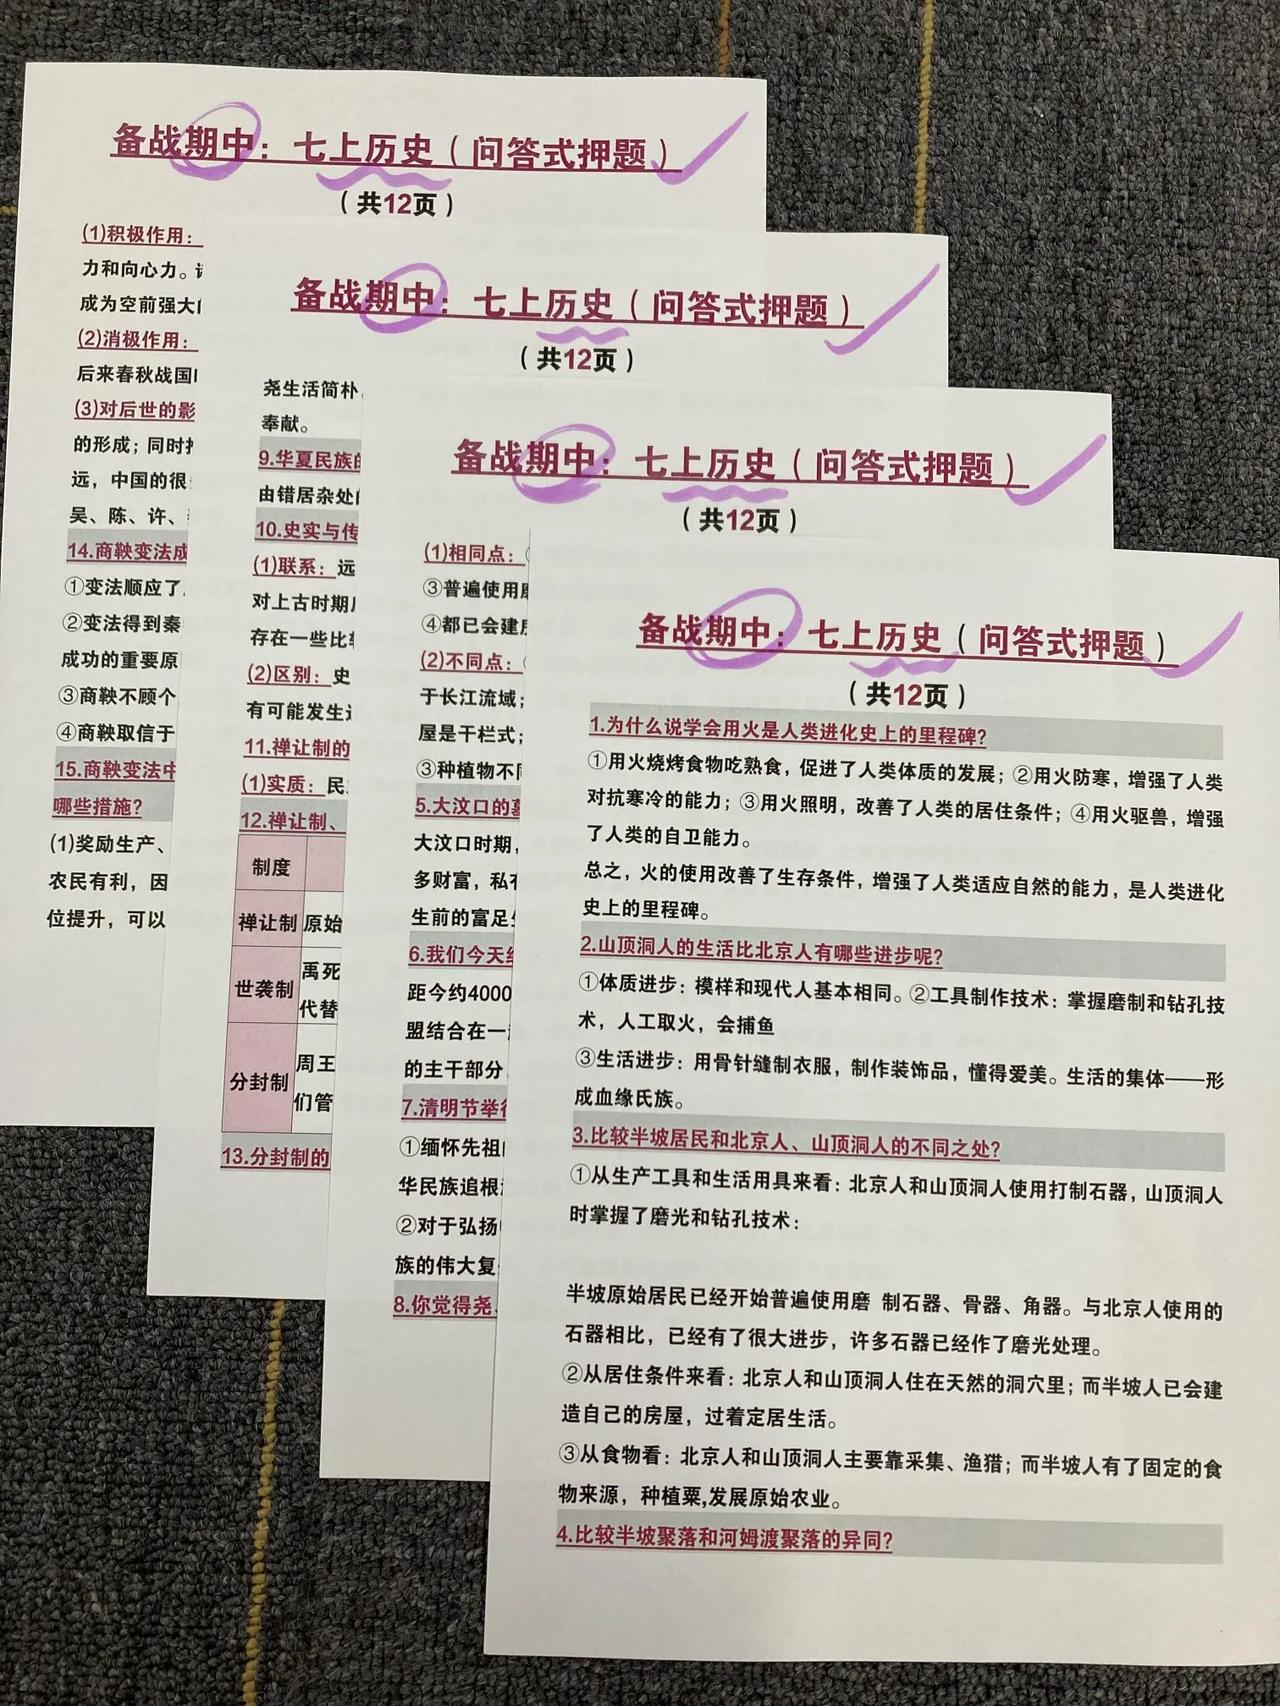 备战期中：七上历史（问答式押题）
（共12页）
(1)积极作用：
力和向心力。
成为空前强大
(2)消极作用：
后来春秋战国
(3)对后世的影
的形成；同时
远，中国的很
吴、陈、许、
14.商鞅变法成
①变法顺应了
②变法得到秦
成功的重要原
③商鞅不顾个
④商鞅取信于
15.商鞅变法中
哪些措施？
(1)奖励生产、
农民有利，因
位提升，可以
备战期中：七上历史（问答式押题）
（共12页）
尧生活简朴
奉献。
9.华夏民族的
由错居杂处
10.史实与传
(1)联系：远
对上古时期
存在一些比较
(2)区别：史
有可能发生
11.禅让制的
(1)实质：民
12.禅让制、
制度
禅让制 原始
世袭制 禹死
代替
分封制 周王
们管
13.分封制的
备战期中：七上历史（问答式押题）
（共12页）
(1)相同点：
③普遍使用
④都已会建
(2)不同点：
于长江流域；
屋是干栏式；
③种植物不同
5.大汶口的墓
大汶口时期，
多财富，私有
生前的富足
6.我们今天
距今约4000
盟结合在一
的主干部分
7.清明节举行
①缅怀先祖
华民族追根
②对于弘扬
族的伟大复
8.你觉得尧、
备战期中：七上历史（问答式押题）
（共12页）
1.为什么说学会用火是人类进化史上的里程碑？
①用火烧烤食物吃熟食，促进了人类体质的发展；②用火防寒，增强了人类
对抗寒冷的能力；③用火照明，改善了人类的居住条件；④用火驱兽，增强
了人类的自卫能力。
总之，火的使用改善了生存条件，增强了人类适应自然的能力，是人类进化
史上的里程碑。
2.山顶洞人的生活比北京人有哪些进步呢？
①体质进步：模样和现代人基本相同。②工具制作技术：掌握磨制和钻孔技
术，人工取火，会捕鱼
③生活进步：用骨针缝制衣服，制作装饰品，懂得爱美。生活的集体——形
成血缘氏族。
3.比较半坡居民和北京人、山顶洞人的不同之处？
①从生产工具和生活用具来看：北京人和山顶洞人使用打制石器，山顶洞人
时掌握了磨光和钻孔技术：
半坡原始居民已经开始普遍使用磨 制石器、骨器、角器。与北京人使用的
石器相比，已经有了很大进步，许多石器已经作了磨光处理。
②从居住条件来看：北京人和山顶洞人住在天然的洞穴里；而半坡人已会建
造自己的房屋，过着定居生活。
③从食物看：北京人和山顶洞人主要靠采集、渔猎；而半坡人有了固定的食
物来源，种植粟,发展原始农业。
4.比较半坡聚落和河姆渡聚落的异同？